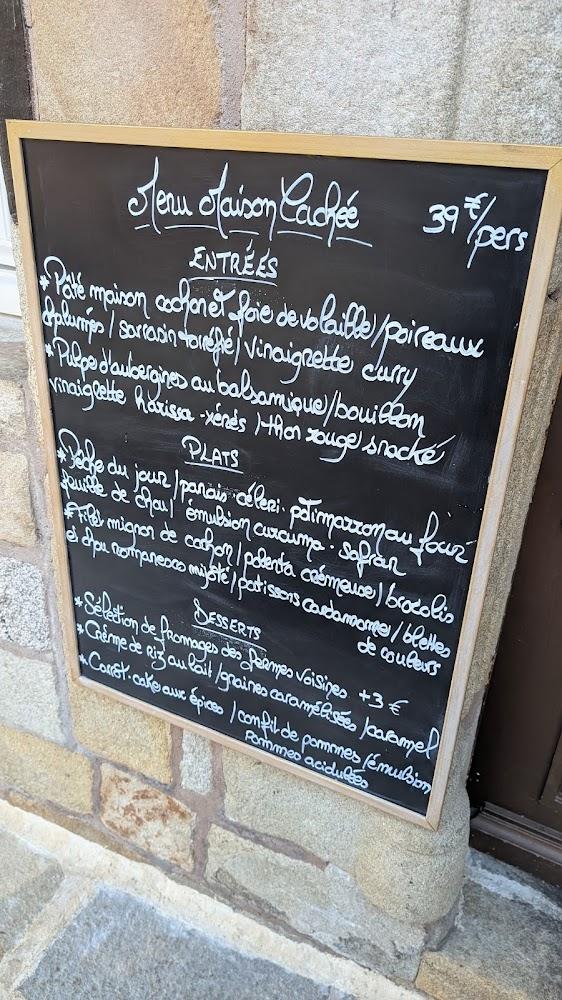 Menu Maison Cachée
39 €/pers
ENTRÉES
* Pâté maison cochon et foie de volaille / poireaux
/ sarrasin torréfié / vinaigrette curry
* Pulpe d'aubergines au balsamique / bouillon
vinaigrette harissa - xérès / thon rouge snacké
PLATS
* Pêche du jour / panais - céleri - potimarron au four
feuille de chou / émulsion curcuma - safran
* Filet mignon de cochon / polenta crémeuse / brocolis
et chou romanesco mijoté / patissons cardamome / blettes
de couleurs
DESSERTS
* Sélection de fromages des fermes voisines +3 €
* Crème de riz au lait / graines caramélisées / caramel
* Carrot-cake aux épices / confit de pommes / émulsion
pommes acidulées